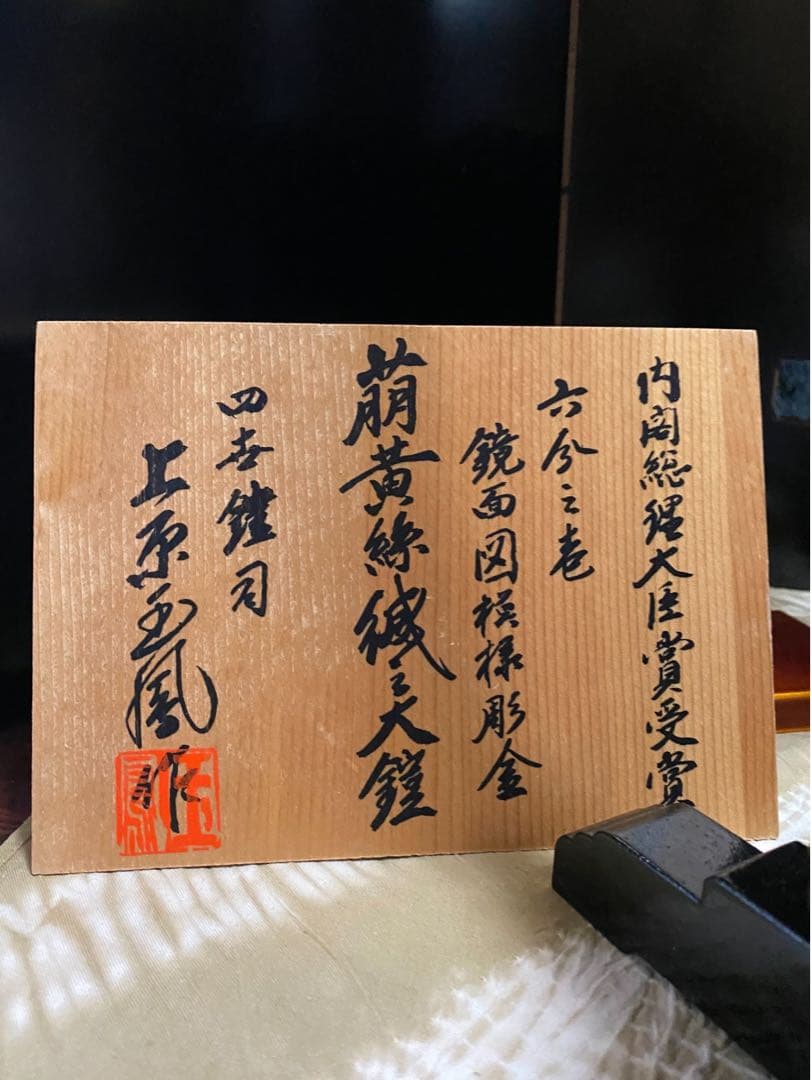 内閣総理大臣賞受賞
六分之壱
鏡面図模様彫金
萠黄絲縅之大鎧
四世鎧司
上原玉鳳作
玉鳳